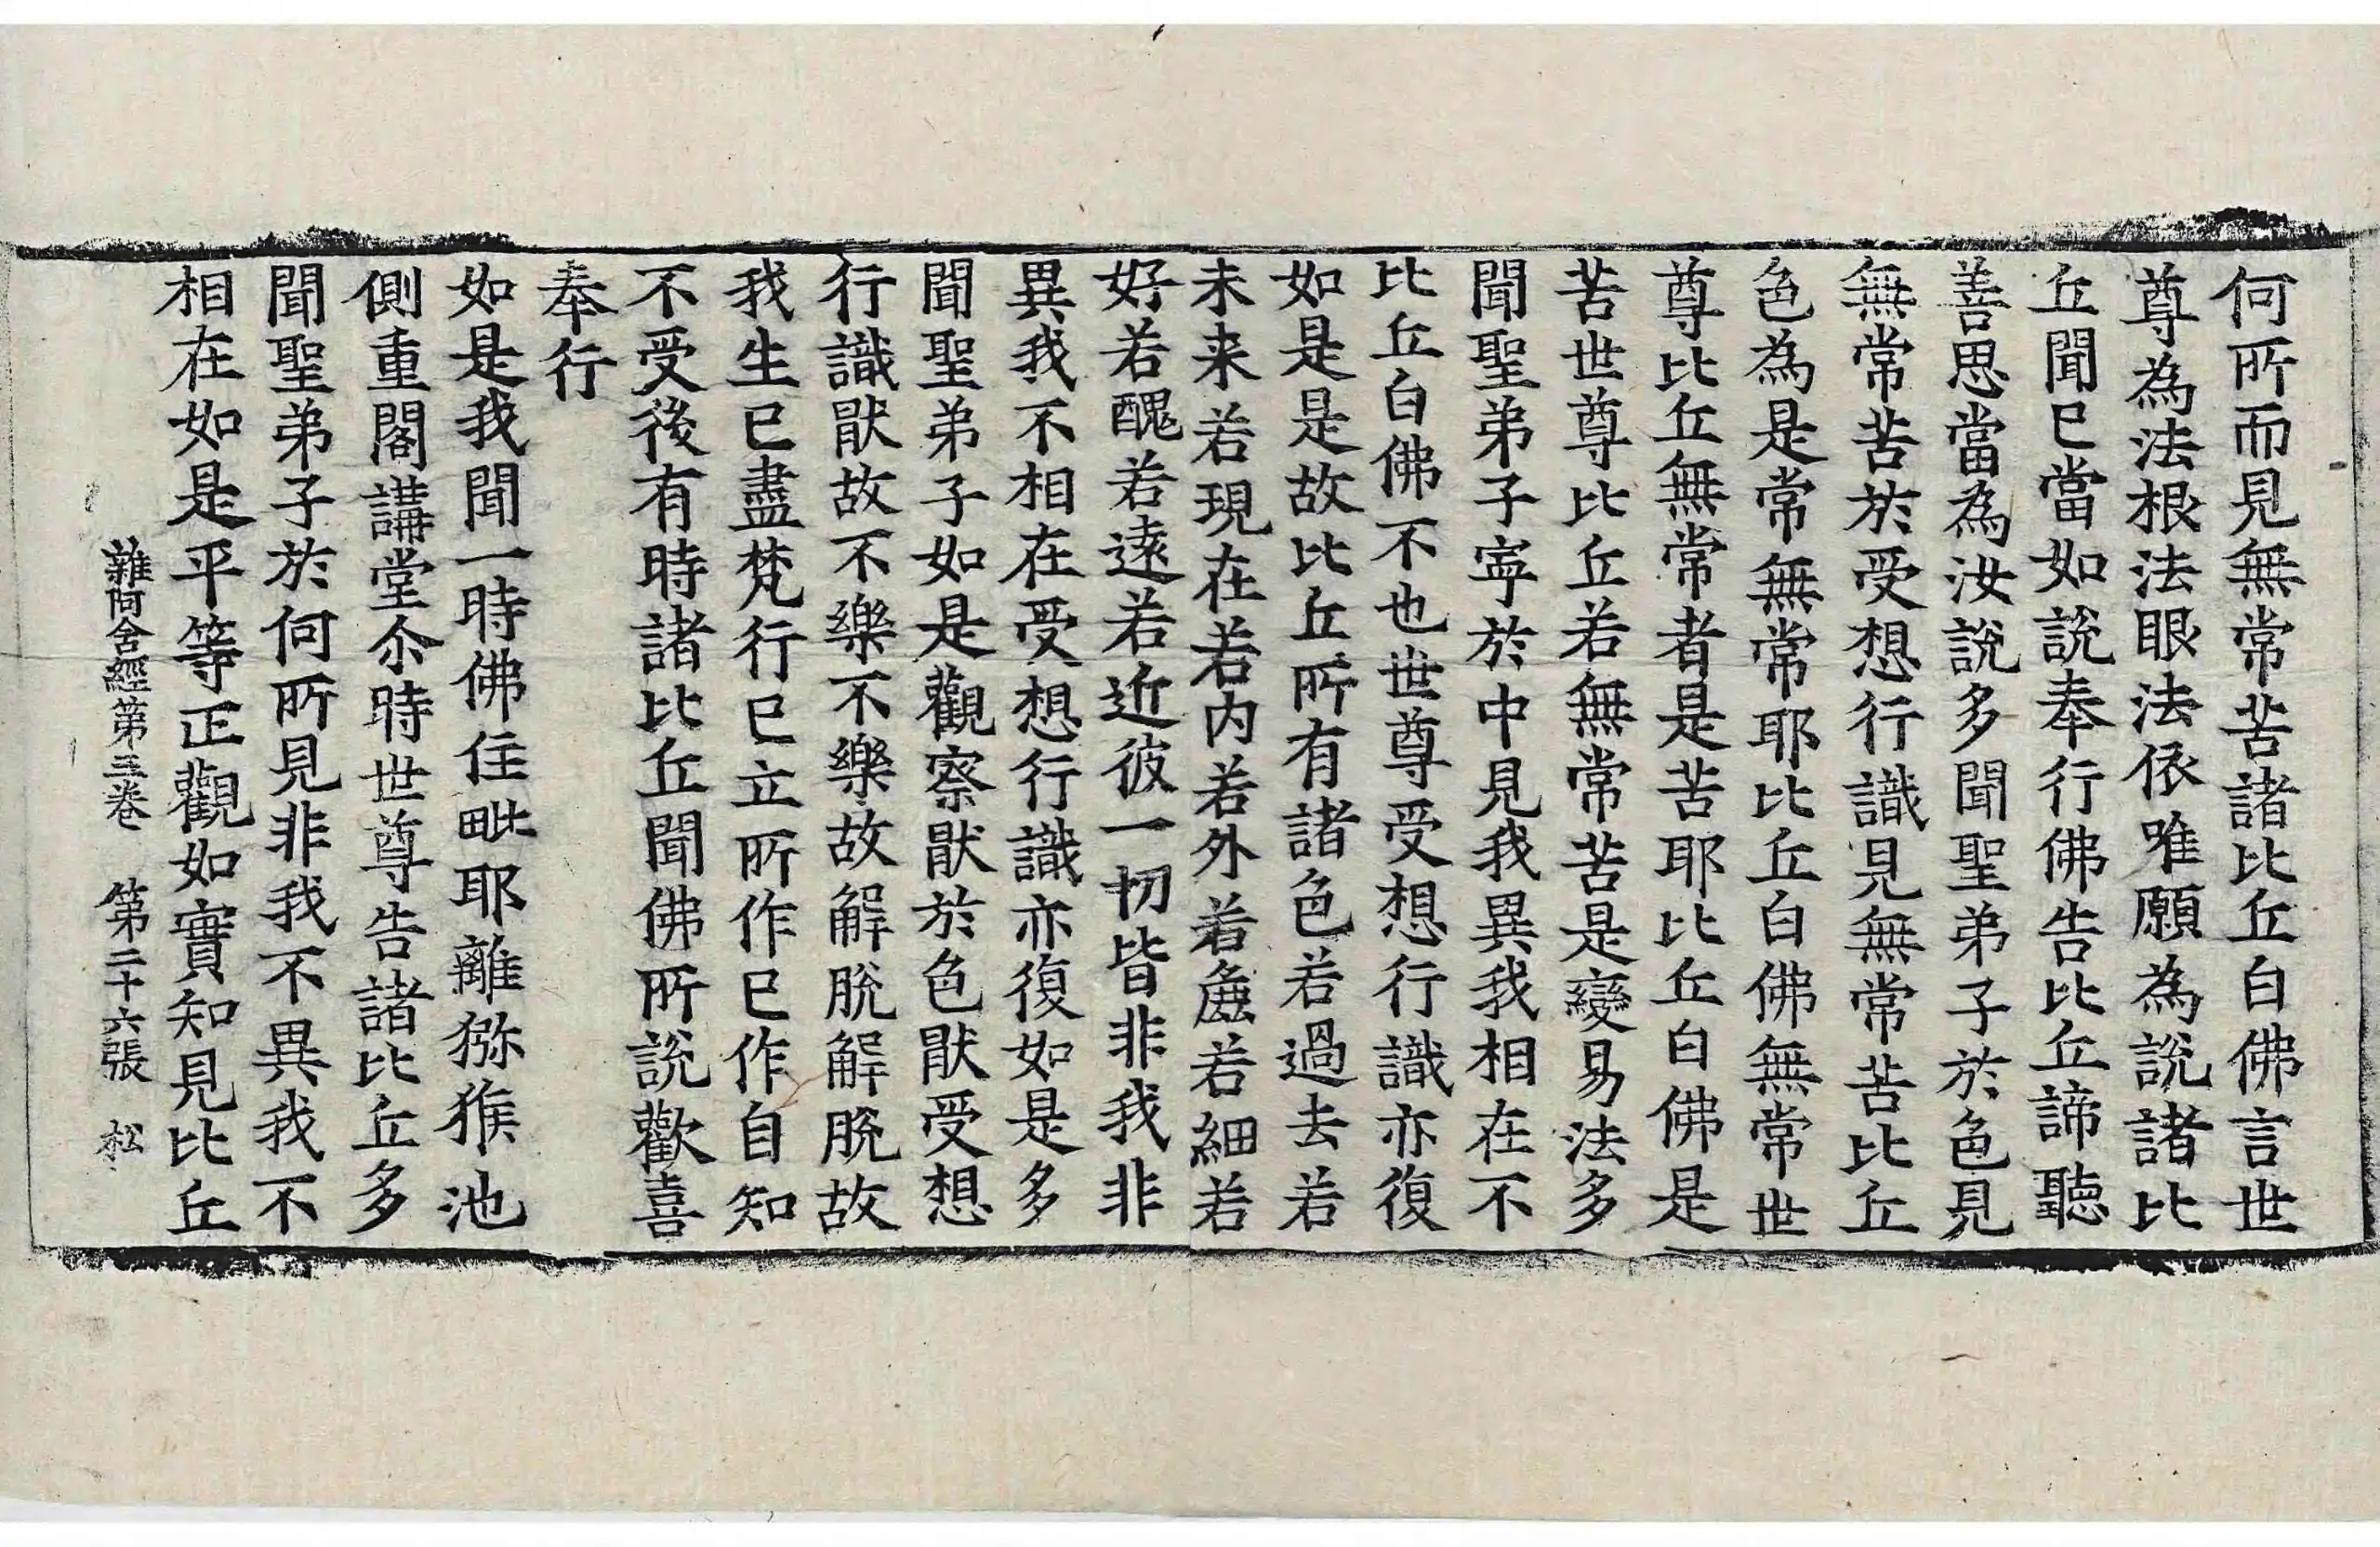 何所而見無常苦諸比丘白佛言世
尊為法根法眼法依唯願為說諸比
丘聞已當如說奉行佛告比丘諦聽
善思當為汝說多聞聖弟子於色見
無常苦於受想行識見無常苦比丘
色為是常無常耶比丘白佛無常世
尊比丘無常者是苦耶比丘白佛是
苦世尊比丘若無常苦是變易法多
聞聖弟子寧於中見我異我相在不
比丘白佛不也世尊受想行識亦復
如是是故比丘所有諸色若過去若
未来若現在若内若外若麁若細若
好若醜若遠若近彼一切皆非我非
異我不相在受想行識亦復如是多
聞聖弟子如是觀察猒於色猒受想
行識猒故不樂不樂故解脫解脫故
我生已盡梵行已立所作已作自知
不受後有時諸比丘聞佛所說歡喜
奉行
如是我聞一時佛住毗耶離獼猴池
側重閣講堂尒時世尊告諸比丘多
聞聖弟子於何所見非我不異我不
相在如是平等正觀如實知見比丘
雜阿含經第三卷 第二十六張 松